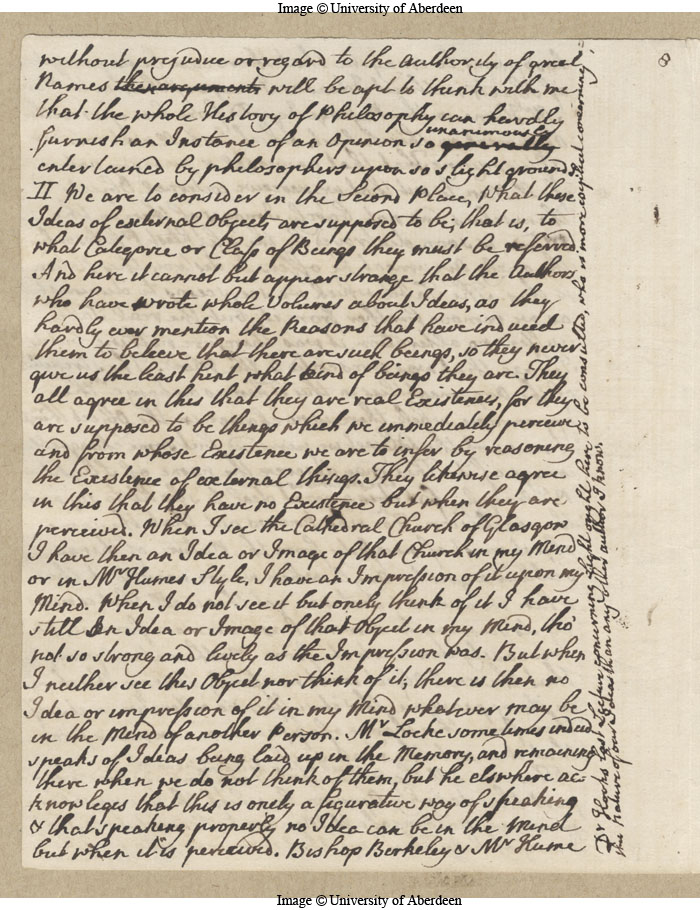 Image © University of Aberdeen
8
without prejudice or regard to the authority of great
Names the arguments will be apt to think with me
that the whole History of Philosophy can hardly
unanimously
furnish an Instance of an Opinion so generally
entertained by philosophers upon so slight grounds.
II We are to consider in the Second Place, What these
Ideas of external Objects are supposed to be; that is, to
what Categorie or Class of Beings they must be referred.
And here it cannot but appear strange that the Authors
who have wrote whole Volumes about Ideas, as they
hardly ever mention the Reasons that have induced
them to beleeve that there are such beings, so they never
give us the least hint what kind of beings they are. They
all agree in this that they are real Existences, for they
are supposed to be things which we immediately perceive
and from whose Existence we are to infer by reasoning
the Existence of external things. They likewise agree
in this that they have no Existence but when they are
perceived. When I see the Cathedral Church of Glasgow
I have then an Idea or Image of that Church in my Mind
or in Mr Humes Style, I have an Impression of it upon my
Mind. When I do not see it but onely think of it I have
still an Idea or Image of that Object in my Mind, tho
not so strong and lively as the Impression was. But when
I neither see this Object nor think of it, there is then no
Idea or impression of it in my Mind whatever may be
in the Mind of another Person. Mr Locke some times indeed
speaks of Ideas being laid up in the Memory, and remaining
there when we do not think of them, but he elsewhere ac=
knowleges that this is onely a figurative way of speaking
& that speaking properly no Idea can be in the Mind
but when it is perceived. Bishop Berkeley & Mr Hume
Dr Hooks Lecture concerning Light ought here to be consulted, who is more explicit concerning
the nature of our Ideas than any other author I know.
Image © University of Aberdeen